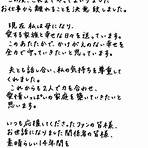 お仕事から離れることを決意致しました。
現在 私は母になり、
愛する家族と幸せな日々を送っています。
このあたたかで、かけがえのない幸せを
全力で守っていきたいと思っています。
夫とも話し合い、私の気持ちを尊重して
くれました。
これからも2人で力を合わせ、
愛情いっぱいの家庭を築いていきたいと
思います。
いつも応援してくださったファンの皆様、
お世話になりました関係者の皆様、
素晴らしい14年間を